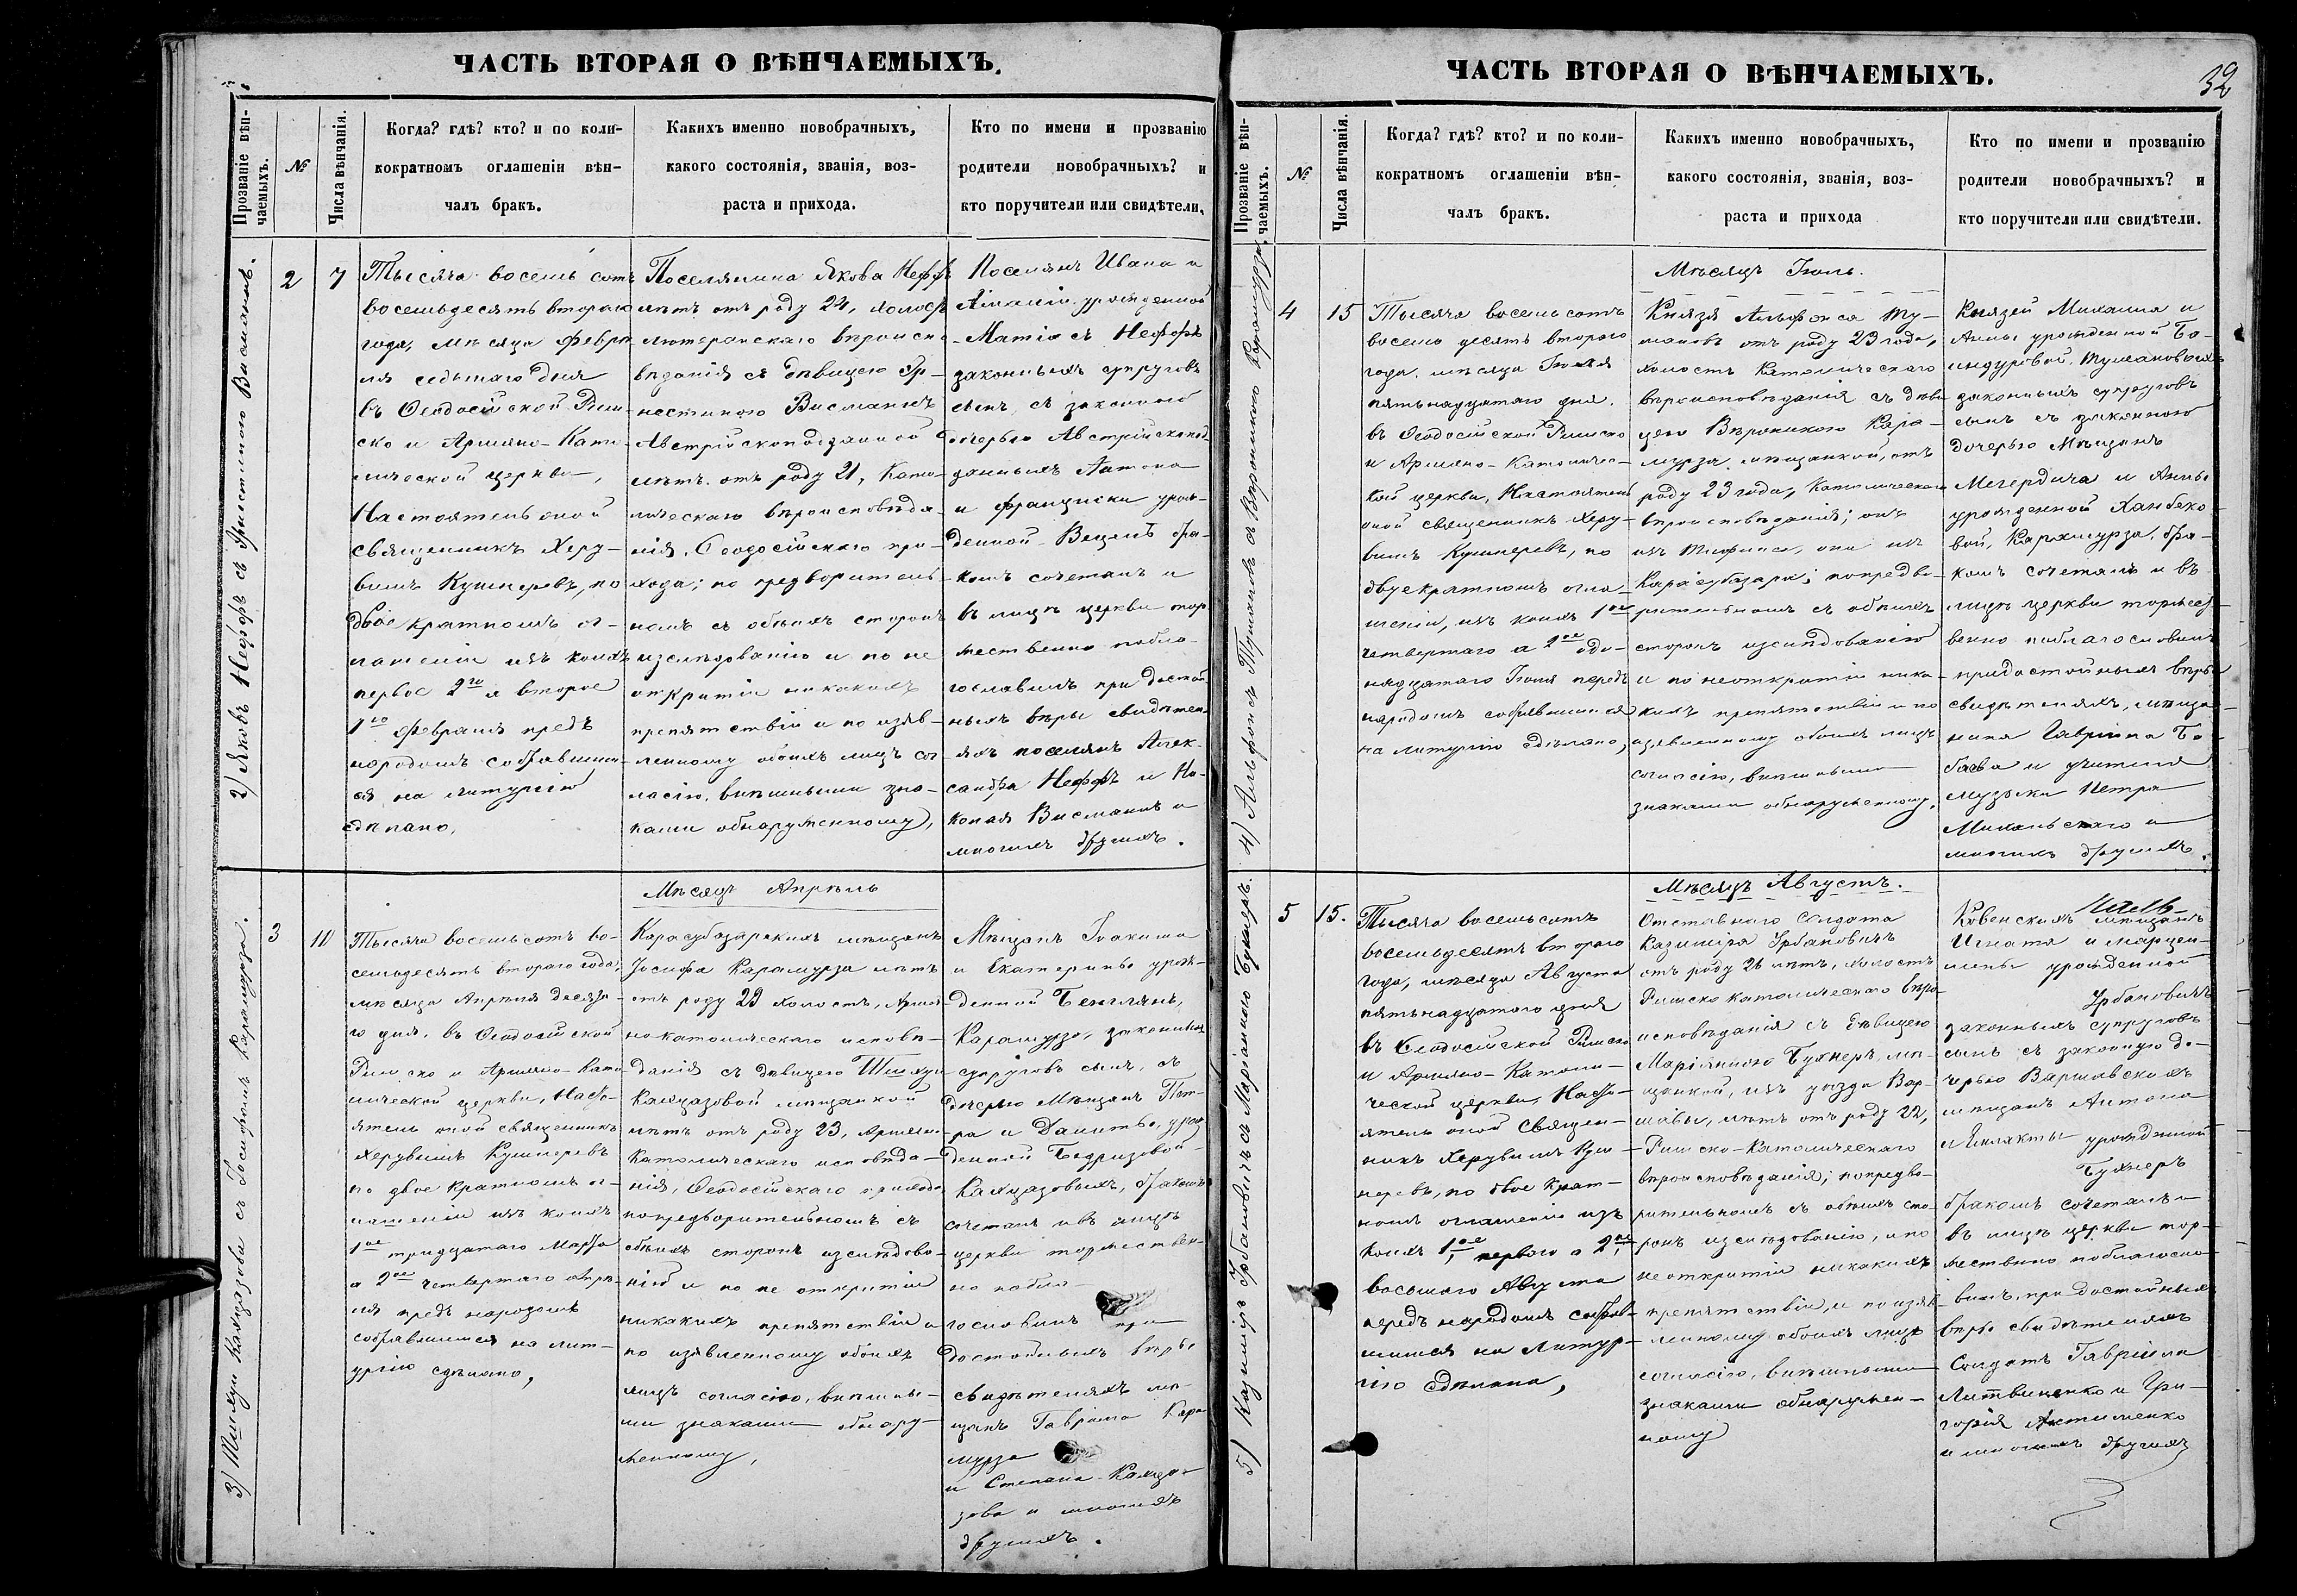 ЧАСТЬ ВТОРАЯ О ВѢНЧАЕМЫХЪ.
Прозваніе вѣн-
чаемыхъ.
№
Числа вѣнчанія.
Когда? гдѣ? кто? и по коли-
кократномъ оглашеніи вѣн-
чалъ бракъ.
Какихъ именно новобрачныхъ,
какого состоянія, званія, воз-
раста и прихода.
Кто по имени и прозванію
родители новобрачныхъ? и
кто поручители или свидѣтели.
2) Яковъ Неффъ съ
2
7
Тысяча восемь сотъ
восемьдесять втораго
года, мѣсяца Февра
ля седьмаго дня
въ Ѳеодосійской Рим
ско и Армяно-Като
лической церкви,
Настоятель оной
священникъ Херу-
вимъ Кушнеревъ, по
двое кратномъ ог-
лашеніи изъ коихъ
первое 2го а второе
1го Февраля предъ
народомъ собравшим-
ся на литургію
сдѣлано,
Поселянина Якова Неффъ
лѣтъ отъ роду 24, холостъ
лютеранскаго вѣроиспо
вѣданія съ дѣвицею Эр-
нестиною Висманъ
Австрійскоподданной
лѣтъ отъ роду 21, Като-
лическаго вѣроисповѣда-
нія, Ѳеодосійскаго при-
хода; по предворитель-
номъ съ обѣихъ сторонъ
изслѣдованію и по не
открытіи никакихъ
препятствій и по изъяв-
ленному обоихъ лицъ сог-
ласію, внѣшными зна-
ками обнаруженному,
Поселянъ Ивана и
урожденной
Матіасъ Неффъ
законныхъ супруговъ
сынъ, съ законной
дочерью Австрійскопод
данныхъ Антона
и Франциски урож-
денной Вецель бра-
комъ сочеталъ и
въ лицѣ церкви тор
жественно побла-
гославилъ при достой-
ныхъ вѣры свидѣтел-
яхъ поселянъ Алек-
сандра Неффъ и Ни-
колая Висманъ и
многихъ другихъ.
3) съ Іосифомъ Карамурза.
3
10
Мѣсяцъ Апрѣль
Тысяча восемьсотъ во-
семьдесять втораго года,
мѣсяца Апрѣля десята-
го дня, въ Ѳеодосійской
Римско и Армяно-Като
лической церкви, Насто-
ятель оной священникъ
Херувимъ Кушнеревъ
по двое кратномъ ог-
лашеніи изъ коихъ
1ое тридцатаго Марта
а 2ое четвертаго Апрѣ-
ля предъ народомъ
собравшимся на лит-
ургію сдѣлано,
Карасубазарскихъ мѣщанъ
Іосифа Карамурза лѣтъ
отъ роду 29 холостъ, Армя-
нокатолическаго исповѣ-
данія съ дѣвицею
мѣщанкой
лѣтъ отъ роду 23, Армяно
Католическаго исповѣда-
нія, Ѳеодосійскаго прихода
попредворительномъ съ
обѣихъ сторонъ изслѣдова-
нію и по не открытіи
никакихъ препятствій и
по изъявленному обоихъ
лицъ согласію, внѣшны-
ми знаками обнару-
женному,
Мѣщанъ Іоакима
и Екатерины урож-
денной
Карамурза, законныхъ
супруговъ сынъ, съ
дочерью Мѣщанъ Пет-
ра и урож
денной
бракомъ
сочеталъ и въ лицѣ
церкви торжествен-
но побла-
гословилъ при
достойныхъ вѣры
свидѣтеляхъ мѣ-
щанъ Гавріила Кара
мурза
и Степана
и многихъ
другихъ.
ЧАСТЬ ВТОРАЯ О ВѢНЧАЕМЫХЪ.
32
Прозваніе вѣн-
чаемыхъ.
№
Числа вѣнчанія.
Когда? гдѣ? кто? и по коли-
кократномъ оглашеніи вѣн-
чалъ бракъ.
Какихъ именно новобрачныхъ,
какого состоянія, званія, воз-
раста и прихода
Кто по имени и прозванію
родители новобрачныхъ? и
кто поручители или свидѣтели.
4) Альфонсъ Тумановъ съ Вѣроникою Карамурза.
4
15
Мѣсяцъ Іюль.
Тысяча восемьсотъ
восемь десять втораго
года, мѣсяца Іюля
пятьнадцатаго дня,
въ Ѳеодосійской Римско
и Армяно-Католичес-
кой церкви, Настоятель
оной священникъ Херу-
вимъ Кушнеревъ, по
двукратномъ огла-
шеніи, изъ коихъ 1ое
четвертаго а 2ое оди-
надцатаго Іюля передъ
народомъ собравшимся
на литургію сдѣлано,
Князя Альфонса Ту-
мановъ отъ роду 23 года,
холостъ Католическаго
вѣроисповѣданія съ дѣви
цею Вѣроникою Кара-
мурза мѣщанкой, отъ
роду 23 года, Католическаго
вѣроисповѣданія; онъ
изъ Тифлиса, она изъ
Карасубазара; попредво-
рительномъ съ обѣихъ
сторонъ изслѣдованію
и по неоткрытіи ника-
кихъ препятствій и по
изъявленному обоихъ лицъ
согласію, внѣшными
знаками обнаруженному.
Князей Михаила и
Анны урожденной
Тумановыхъ
законныхъ супруговъ
сынъ съ законною
дочерью Мѣщанъ
Мегердича и Анны
урожденной Ханбеко-
вой, Карамурза, бра-
комъ сочеталъ и въ
лицѣ церкви торжест-
венно поблагословилъ
придостойныхъ вѣры
свидѣтеляхъ, мѣща-
нина Гавріила Ба-
баева и учителя
музыки Петра
и
многихъ другихъ.
5) Казиміръ Урбановичъ съ Маріанною Бухнеръ.
5
15.
Мѣсяцъ Августъ.
Тысяча восемьсотъ
восемьдесятъ втораго
года, мѣсяца Августа
пятьнадцатаго дня
въ Ѳеодосійской Римско
и Армяно-Католи-
ческой церкви, Насто-
ятель оной Священ-
никъ Херувимъ Куш-
неревъ, по двое крат-
номъ оглашеніи изъ
коихъ 1ое перваго а 2ое
восьмаго Августа
передъ народомъ собрав-
шимся на Литур-
гію сдѣлано,
Отставного солдата
Казиміра Урбановичъ
отъ роду 26 лѣтъ, холостъ
Римско католическаго вѣро-
исповѣданія съ дѣвицею
Маріанною Бухнеръ, мѣ-
щанкой, изъ уѣзда Вар-
шавы, лѣтъ отъ роду 22,
Римско-Католическаго
вѣроисповѣданія; попредво-
рительномъ съ обѣихъ сто-
ронъ изслѣдованію, и по
неоткрытіи никакихъ
препятствій, и по изъяв-
ленному обоихъ лицъ
согласію, внѣшными
знаками обнаружен-
ному
Ковенскихъ мѣщанъ
Игнатія и Марцел-
лины урожденной
Урбановичъ
законныхъ супруговъ
сынъ съ законную до-
черью Варшавскихъ
мѣщанъ Антона
и урожденной
Бухнеръ
бракомъ сочеталъ и
въ лицѣ церкви тор-
жественно поблагосло-
вилъ, при достойныхъ
вѣры свидѣтеляхъ
Солдатъ Гавріила
Литвиненко и Гри-
горія
и многихъ другихъ